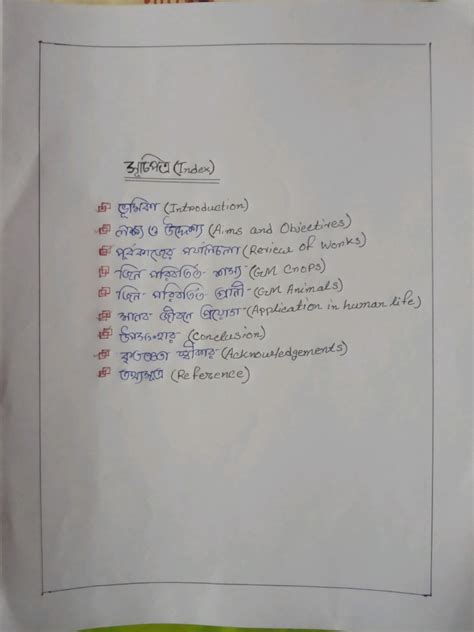 সূচিপত্র (Index)
ভূমিকা (Introduction)
লক্ষ্য ও উদ্দেশ্য (Aims and Objectives)
পূর্বকাজের পর্যালচনা (Review of Works)
জিন পরিবর্তিত শস্য (GM Crops)
জিন পরিবর্তিত প্রাণী (GM Animals)
মানব জীবনে প্রয়োগ (Application in human life)
উপসংহার (Conclusion)
কৃতজ্ঞতা স্বীকার (Acknowledgements)
তথ্যসূত্র (Reference)